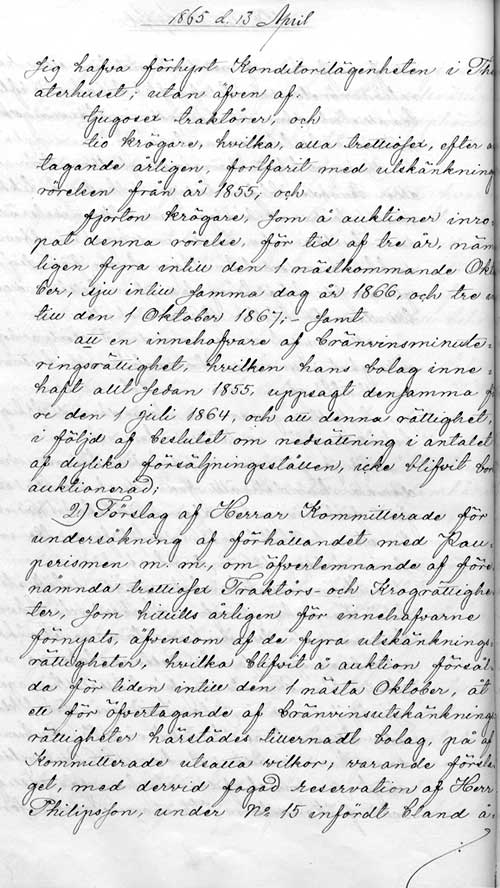 1865 d. 13 April
sig hafva förhyrt Konditorilägenheten i The
aterhuset; utan äfven af:
tjugosex traktörer, och
tio krögare, hvilka, alla trettiosex, efter a
tagande årligen, fortfarit med utskänknings
rörelsen från år 1855; och
fjorton krögare, som å auktioner inro-
pat denna rörelse, för tid af tre år, näm
ligen fyra intill den 1 nästkommande Okto
ber, sju intill samma dag år 1866, och tre in
till den 1 Oktober 1867; – samt
att en innehafvare af bränvinsminute-
ringsrättighet, hvilken hans bolag inne-
haft allt sedan 1855, uppsagt densamma fö
re den 1 Juli 1864, och att denna rättighet,
i följd af beslutet om nedsättning i antalet
af dylika försäljningsställen, icke blifvit bort
auktionerad;
2.) Förslag af Herrar Kommitterade för
undersökning af förhållandet med Pau-
perismen m. m., om öfverlemnande af före
nämnda trettiosex Traktörs- och Krogrättighe
ter, som hittills årligen för innehafvarne
förnyats, äfvensom af de fyra utskänknings-
rättigheter, hvilka blifvit å auktion försål-
da för tiden intill den 1 nästa Oktober, åt
ett för öfvertagande af bränvinsutskänknings
rättigheter härstädes tillernadt bolag, på af
Kommitterade utsatta vilkor; varande försla
get, med dervid fogad reservation af Herr
Philipsson, under No 15 infördt bland å-